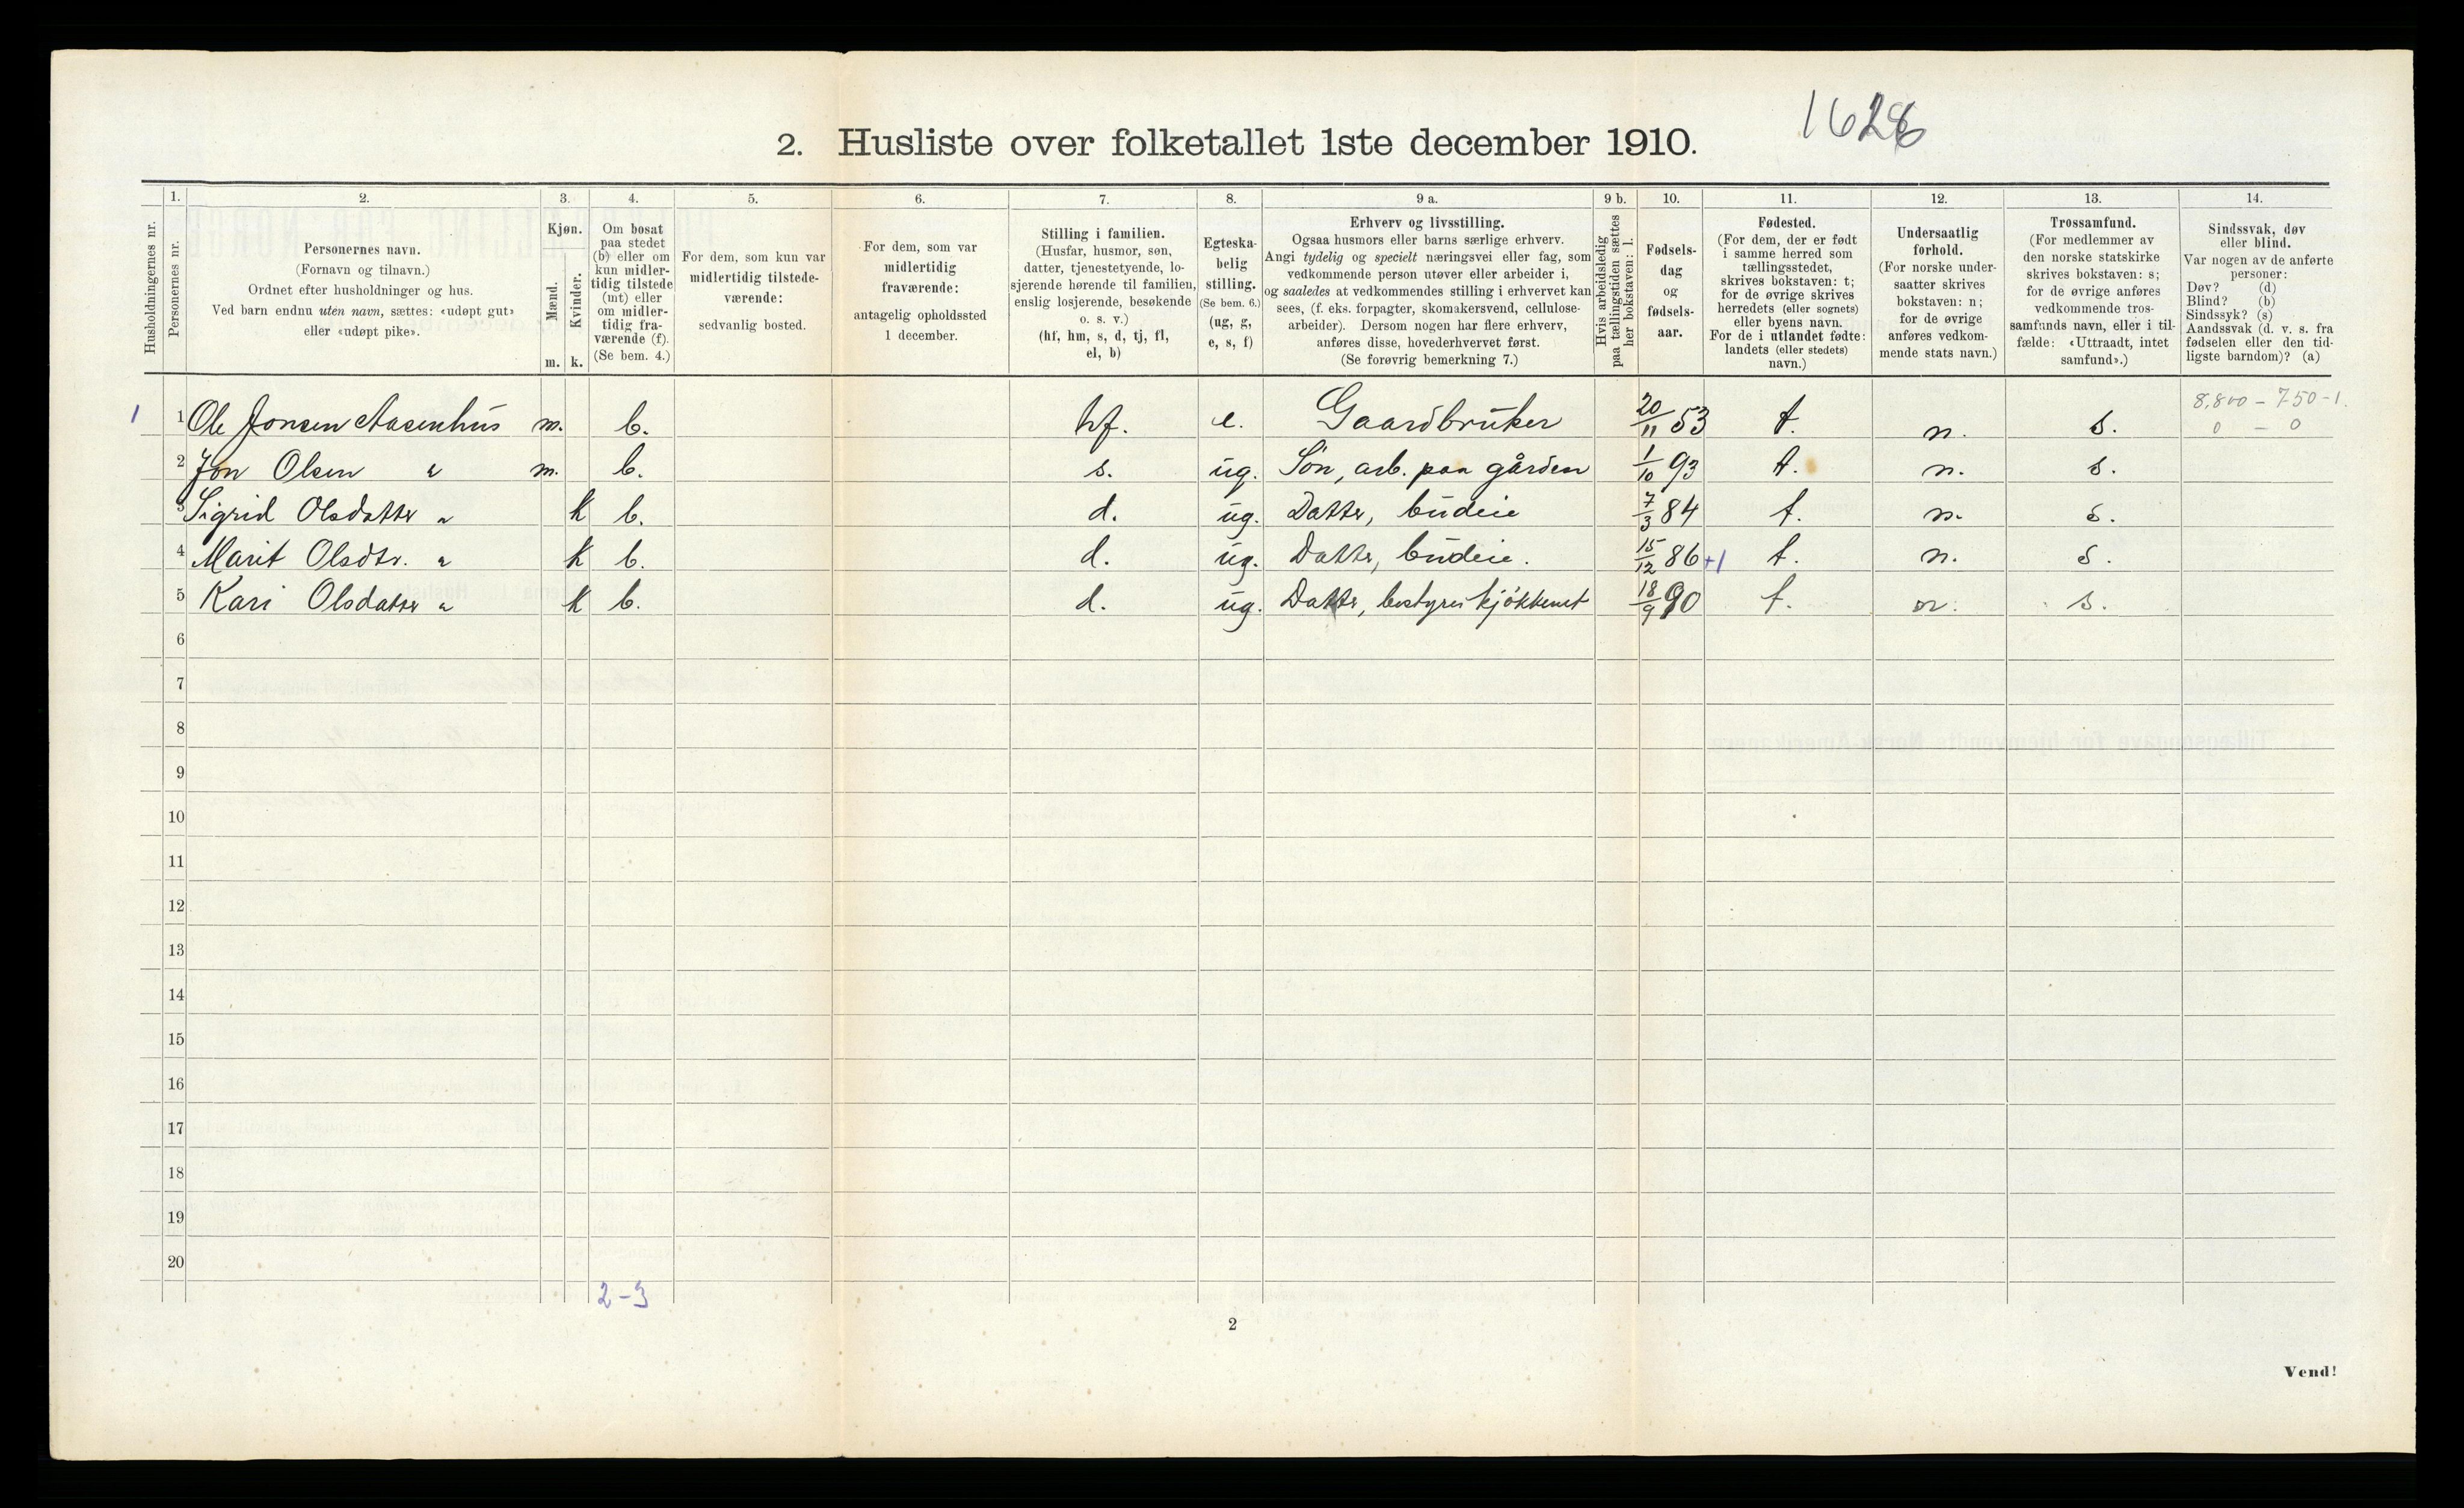 1628
2. Husliste over folketallet 1ste december 1910.
Husholdningernes nr.
1.
Personernes nr.
2.
Personernes navn.
(Fornavn og tilnavn.)
Ordnet efter husholdninger og hus.
Ved barn endnu uten navn, sættes: «udøpt gut»
eller «udøpt pike».
3.
Kjøn.
Mænd.
Kvinder.
m. k.
4.
Om bosat
paa stedet
(b) eller om
kun midler-
tidig tilstede
(mt) eller
om midler-
tidig fra-
værende (f).
(Se bem. 4.)
5.
For dem, som kun var
midlertidig tilstede-
værende:
sedvanlig bosted.
6.
For dem, som var
midlertidig
fraværende:
antagelig opholdssted
1 december.
7.
Stilling i familien.
(Husfar, husmor, søn,
datter, tjenestetyende, lo-
sjerende hørende til familien,
enslig losjerende, besøkende
o. s. v.)
(hf, hm, s, d, tj, fl,
el, b)
8.
Egteska-
belig
stilling.
(Se bem. 6.)
(ug, g,
e, s, f)
9 a.
Erhverv og livsstilling.
Ogsaa husmors eller barns særlige erhverv.
Angi tydelig og specielt næringsvei eller fag, som
vedkommende person utøver eller arbeider i,
og saaledes at vedkommendes stilling i erhvervet kan
sees, (f. eks. forpagter, skomakersvend, cellulose-
arbeider). Dersom nogen har flere erhverv,
anføres disse, hovederhvervet først.
(Se forøvrig bemerkning 7.)
9 b.
Hvis arbeidsledig
paa tællingstiden sættes
her bokstaven: l.
10.
Fødsels-
dag
og
fødsels-
aar.
11.
Fødested.
(For dem, der er født
i samme herred som
tællingsstedet,
skrives bokstaven: t;
for de øvrige skrives
herredets (eller sognets)
eller byens navn.
For de i utlandet fødte:
landets (eller stedets)
navn.)
12.
Undersaatlig
forhold.
(For norske under-
saatter skrives
bokstaven: n;
for de øvrige
anføres vedkom-
mende stats navn.)
13.
Trossamfund.
(For medlemmer av
den norske statskirke
skrives bokstaven: s;
for de øvrige anføres
vedkommende tros-
samfunds navn, eller i til-
fælde: «Uttraadt, intet
samfund».)
14.
Sindssvak, døv
eller blind.
Var nogen av de anførte
personer:
Døv? (d)
Blind? (b)
Sindssyk? (s)
Aandssvak (d. v. s. fra
fødselen eller den tid-
ligste barndom)? (a)
1 1 Ole Jonsen Aasenhus m. b. hf. e. Gaardbruker 20/11 53 t. n. s. 8,800 - 750-1.
0 - 0
2 Jon Olsen " m. b. s. ug. Søn, arb. paa gården 1/10 93 t. n. s.
3 Sigrid Olsdatter " k b. d. ug. Datter, budeie 7/3 84 t. n. s.
4 Marit Olsdtr. " k b. d. ug. Datter, budeie. 15/12 86 +1 t. n. s.
5 Kari Olsdatter " k b. d. ug. Datter, bestyrer kjøkkenet 18/9 90 t. n. s.
6
7
8
9
10
11
12
13
14
15
16
17
18
19
20
2-3
2
Vend!